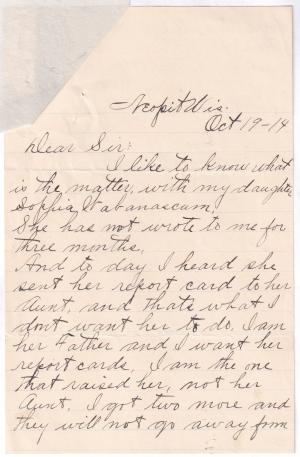 Neopit Wis.
Oct 19-14
Dear Sir:
I like to know what
is the matter, with my daughter
Sophia Wabanascum.
She has not wrote to me for
three months.
And to day I heard she
sent her report card to her
Aunt, and thats what I
dont want her to do. I am
her Father and I want her
report cards. I am the one
that raised her, not her
Aunt. I got two more and
they will not go away from